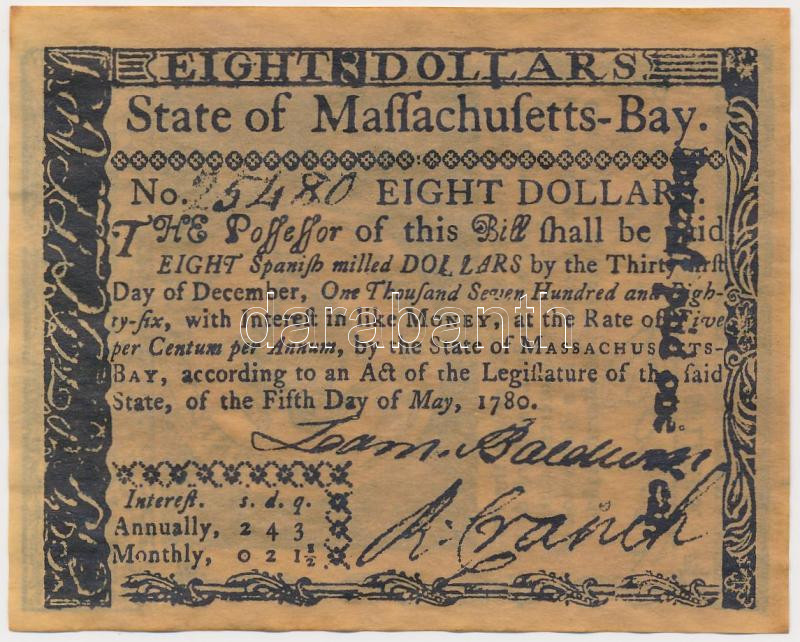 EIGHT 8 DOLLARS
State of Maſſachuſetts-Bay.
No. 25480 EIGHT DOLLARS.
THE Poſſeſſor of this Bill ſhall be paid
EIGHT Spaniſh milled DOLLARS by the Thirty-firſt
Day of December, One Thouſand Seven Hundred and Eigh-
ty-ſix, with Intereſt in like MONEY, at the Rate of Five
per Centum per Annum, by the State of MASSACHUSETTS-
BAY, according to an Act of the Legiſlature of the ſaid
State, of the Fifth Day of May, 1780.
Loam. Baldwin
R: Cranch
Intereſt. s. d. q.
Annually, 2 4 3
Monthly, 0 2 1½
Intereſt paid one
darabanth